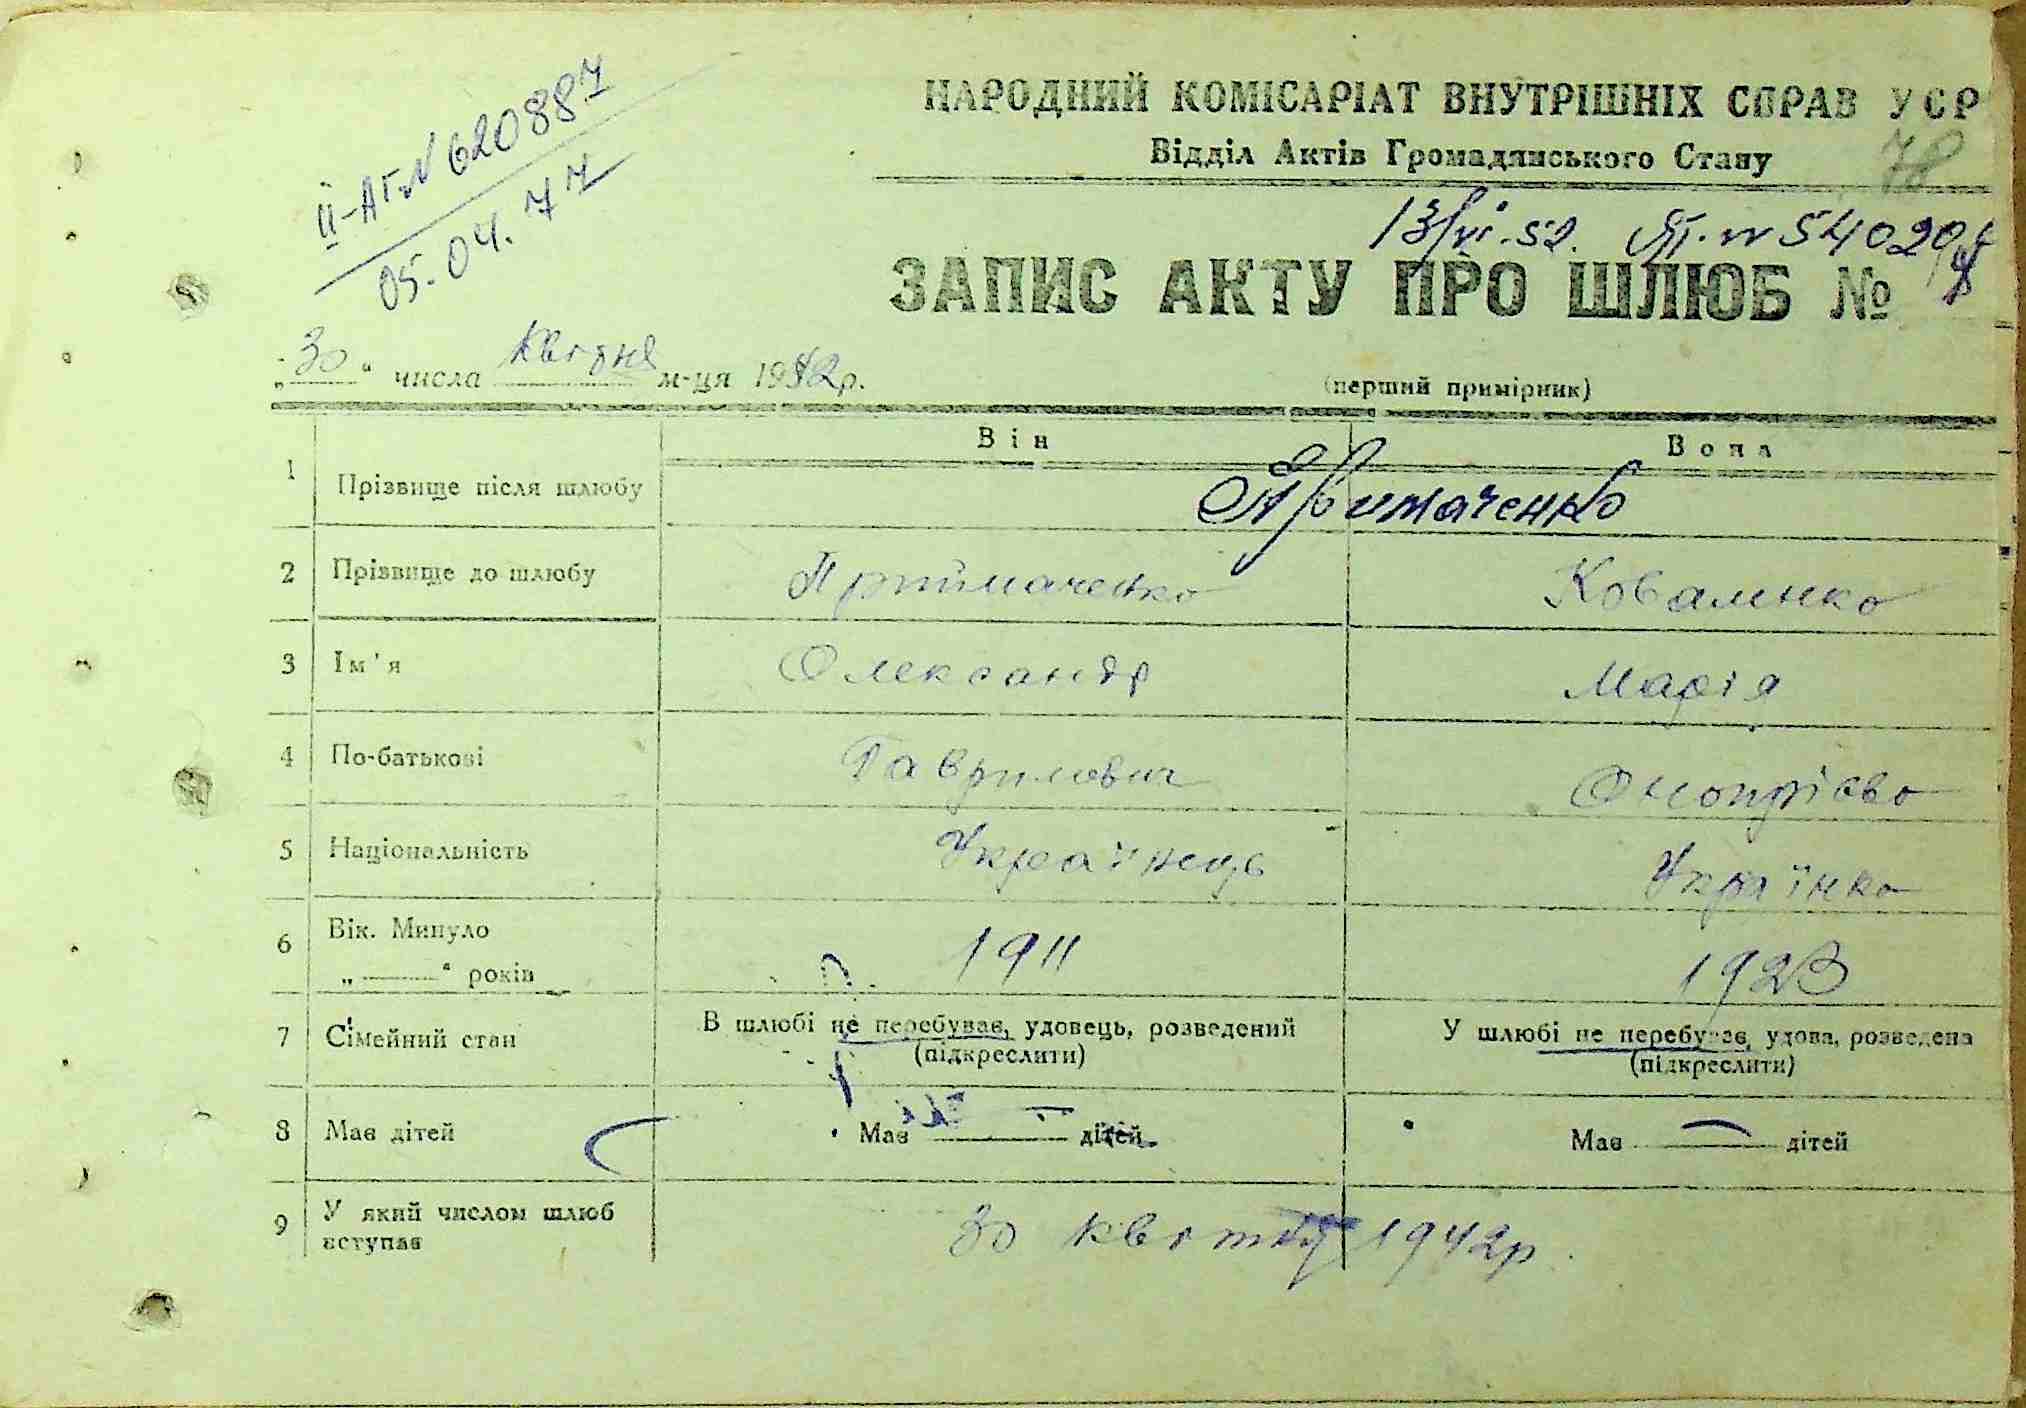 НАРОДНИЙ КОМІСАРІАТ ВНУТРІШНІХ СПРАВ УСР
Відділ Актів Громадянського Стану
78
ІІ-АГ № 620887
05.04.77
13/VI-52. № 54020
ЗАПИС АКТУ ПРО ШЛЮБ №
„30“ числа квітня м-ця 1942р.
(перший примірник)
Він Вона
1 Прізвище після шлюбу Примаченко
2 Прізвище до шлюбу Приймаченко Коваленко
3 Ім'я Олександр Марія
4 По-батькові Гаврилович Онопрієва
5 Національність Українець Українка
6 Вік. Минуло „——“ років 1911 1923
7 Сімейний стан В шлюбі не перебуває, удовець, розведений (підкреслити) У шлюбі не перебуває, удова, розведена (підкреслити)
8 Має дітей Має — дітей Має — дітей
9 У який числом шлюб вступає 30 квітня 1942р.